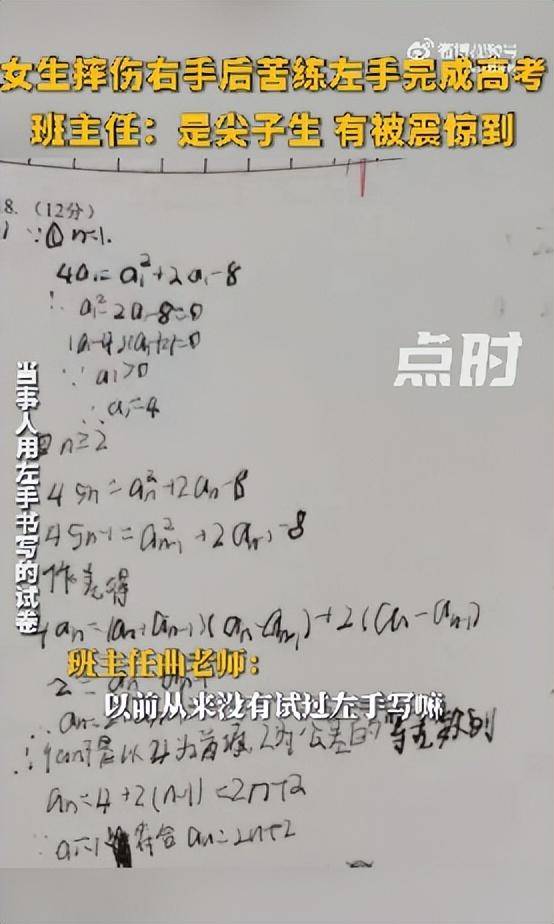 女生摔伤右手后苦练左手完成高考
班主任：是尖子生 有被震惊到
8.（12分）
∵① n=1.
4a₁=a₁²+2a₁-8
∴a₁²-2a₁-8=0
(a₁-4)(a₁+2)=0
∵a₁>0
∴a₁=4
② n≥2
点时
当事人用左手书写的试卷
4Sn=an²+2an-8
4Sn-1=an-1²+2an-1-8
作差得
4an=(an+an-1)(an-an-1)+2(an-an-1)
班主任曲老师：
以前从来没有试过左手写嘛
∴{an}是以4为首项,2为公差的等差数列
an=4+2(n-1)=2n+2
符合 an=2n+2